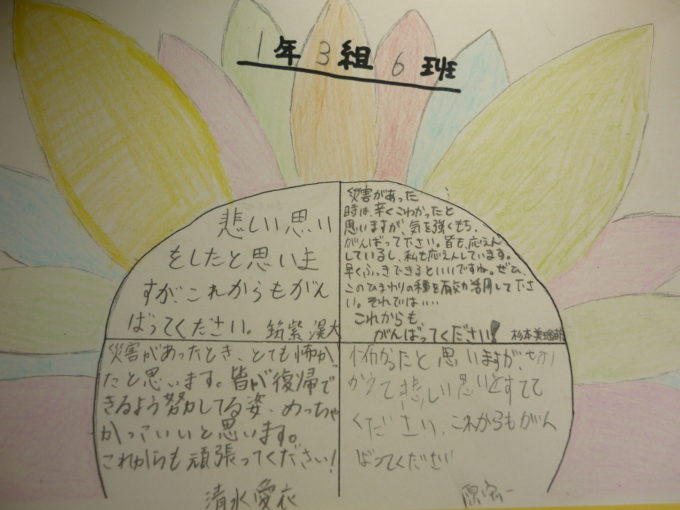 1年3組6班
悲しい思い
をしたと思いま
すがこれからもがん
ばってください。筑紫 漠大
災害があった
時は、辛くこわかったと
思いますが、気を強くもち、
がんばって下さい。皆も、応えん
しているし、私も応えんしています。
早くふっきできるといいですね。ぜひ、
このひまわりの種を有効活用してくださ
い。それでは....
これからも
がんばってください! 杉本美瑠
災害があったとき、とても怖か
たと思います。皆が復帰で
きるよう努力してる姿、めっちゃ
かっこいいと思います。
これからも頑張ってください!
清水愛衣
怖かったと思いますが、
て悲しい思いをすてて
ください、これからもがん
ばってください
原